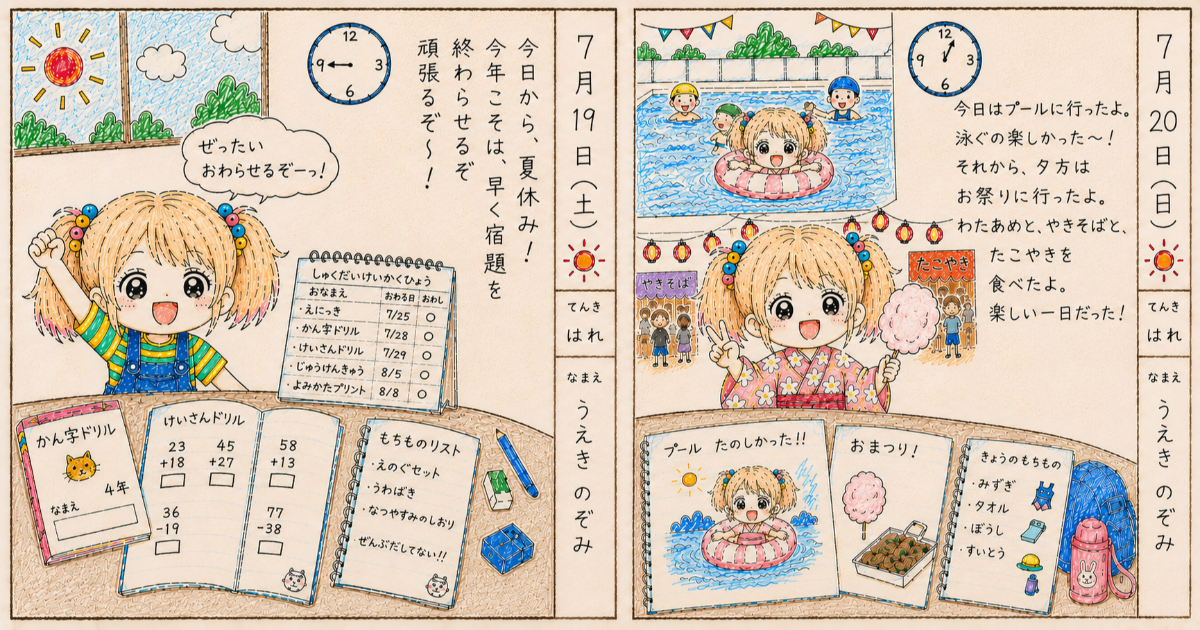 7月19日(土)
てんき
はれ
なまえ
うえき のぞみ
今日から、夏休み!
今年こそは、早く宿題を
終わらせるぞ
頑張るぞ〜!
12
3
6
9
ぜったい
おわらせるぞーっ!
しゅくだいけいかくひょう
おなまえ おわる日 おわし
・えにっき 7/25 ○
・かん字ドリル 7/28 ○
・けいさんドリル 7/29 ○
・じゅうけんきゅう 8/5 ○
・よみかたプリント 8/8 ○
かん字ドリル
4年
なまえ
けいさんドリル
23 45 58
+18 +27 +13
36 77
-19 -38
もちものリスト
・えのぐセット
・うわばき
・なつやすみのしおり
・ぜんぶだしてない!!
7月20日(日)
てんき
はれ
なまえ
うえき のぞみ
12
3
6
9
今日はプールに行ったよ。
泳ぐの楽しかった〜!
それから、夕方は
お祭りに行ったよ。
わたあめと、やきそばと、
たこやきを
食べたよ。
楽しい一日だった!
やきそば
たこやき
プール たのしかった!!
おまつり!
きょうのもちもの
・みずぎ
・タオル
・ぼうし
・すいとう